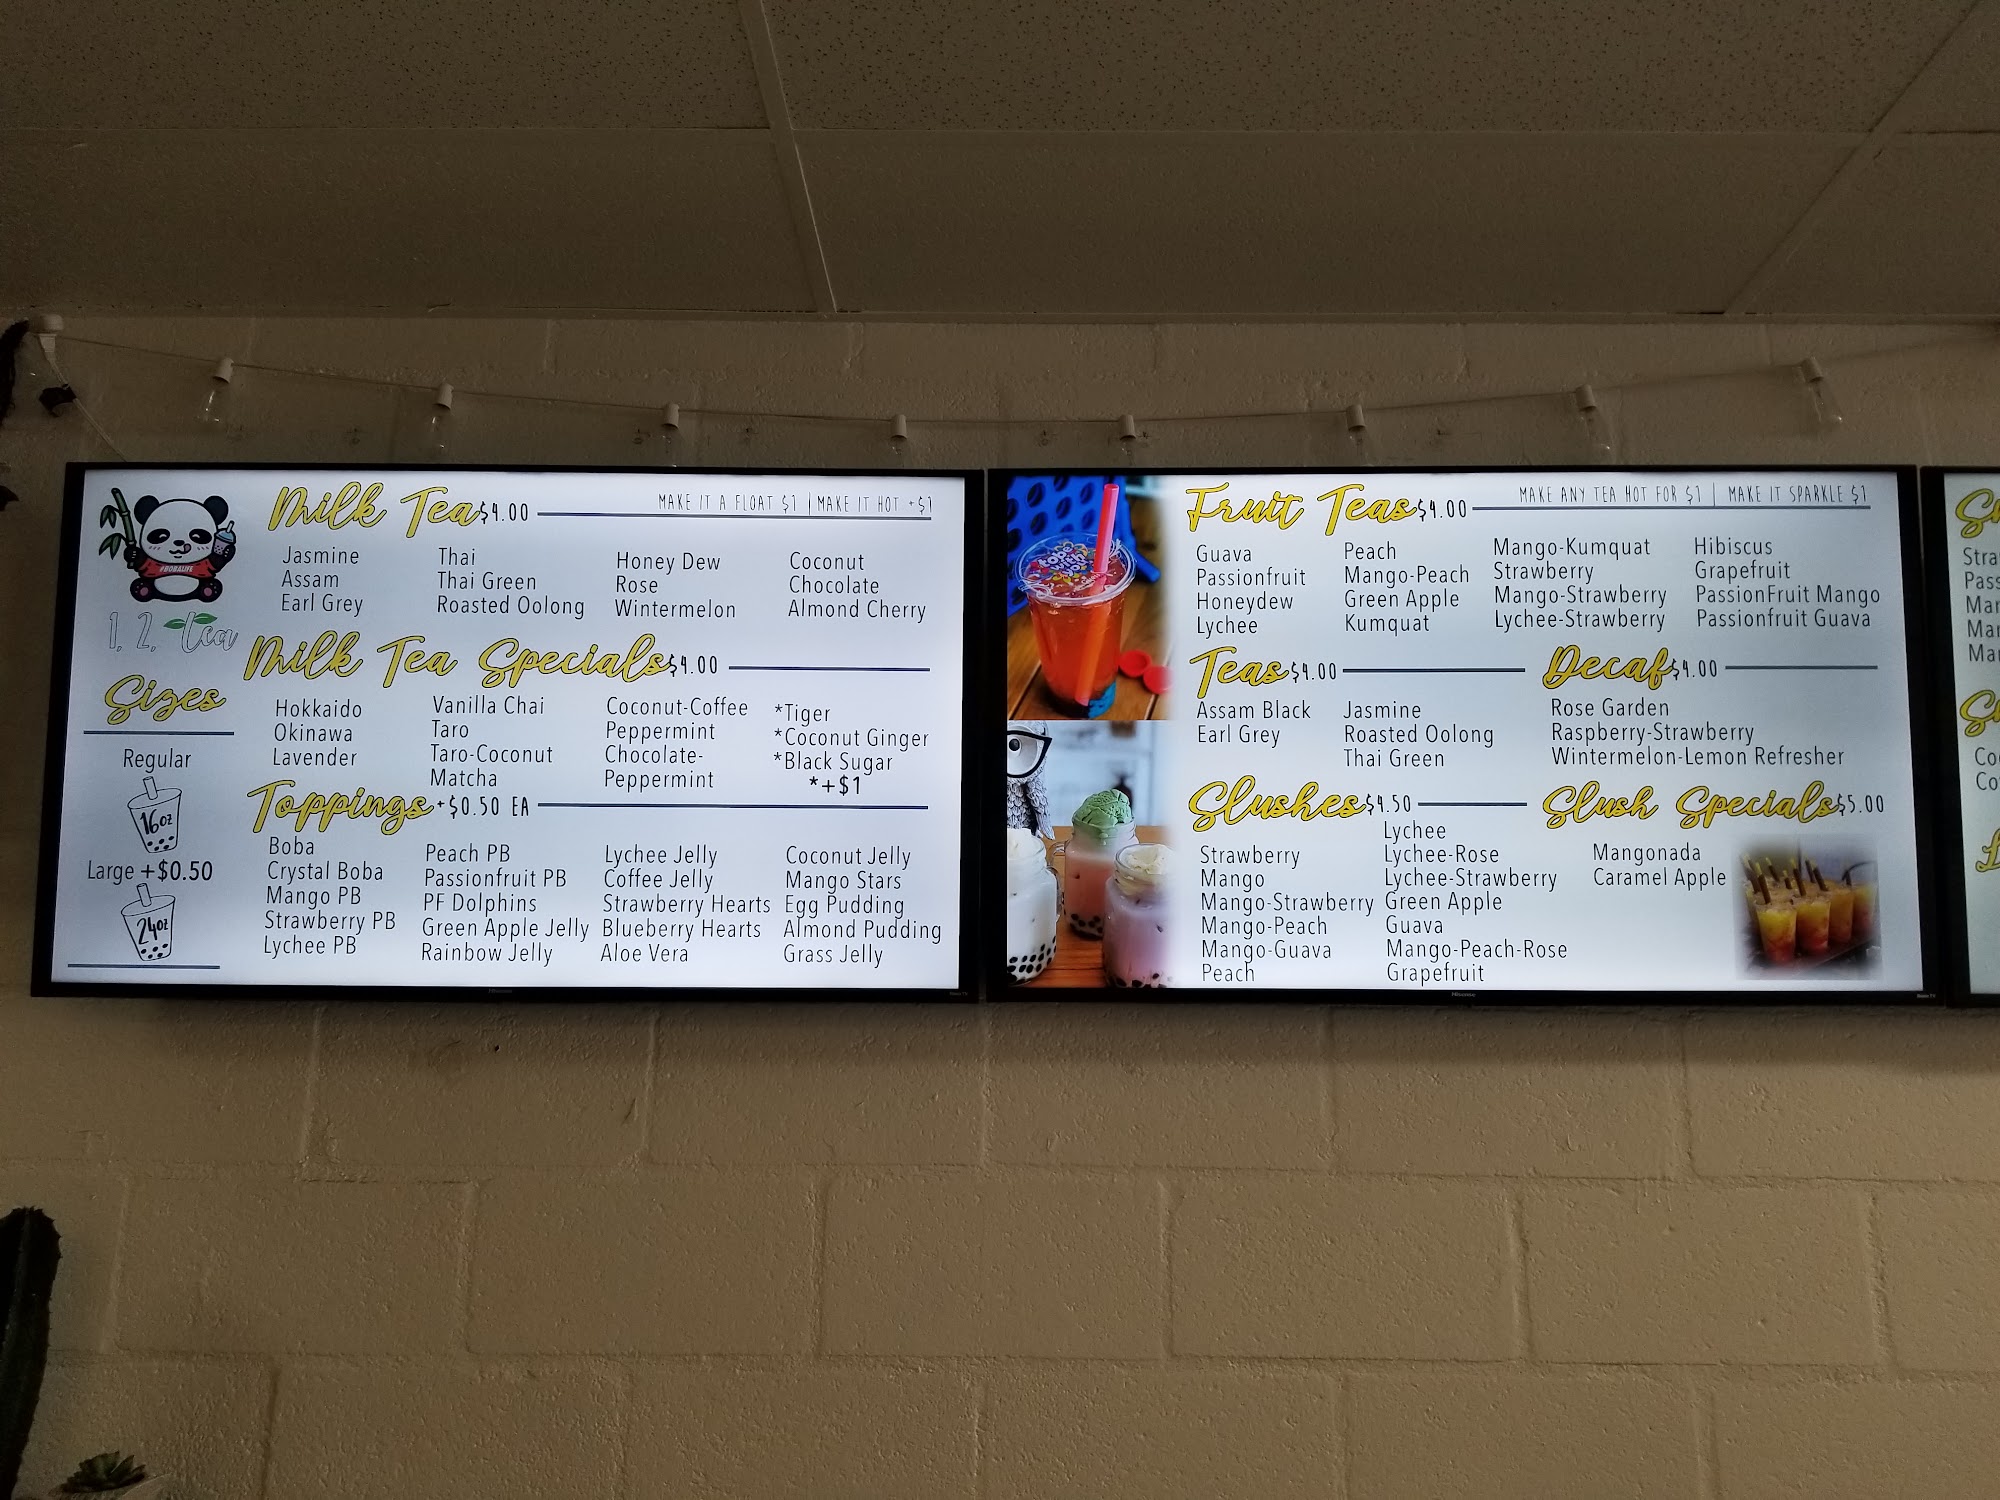 #BOBALIFE
1, 2, tea
Sizes
Regular
16oz
Large +$0.50
24oz
Milk Tea $4.00
MAKE IT A FLOAT $1 | MAKE IT HOT +$1
Jasmine
Assam
Earl Grey
Thai
Thai Green
Roasted Oolong
Honey Dew
Rose
Wintermelon
Coconut
Chocolate
Almond Cherry
Milk Tea Specials $4.00
Hokkaido
Okinawa
Lavender
Vanilla Chai
Taro
Taro-Coconut
Matcha
Coconut-Coffee
Peppermint
Chocolate-
Peppermint
*Tiger
*Coconut Ginger
*Black Sugar
*+$1
Toppings +$0.50 EA
Boba
Crystal Boba
Mango PB
Strawberry PB
Lychee PB
Peach PB
Passionfruit PB
PF Dolphins
Green Apple Jelly
Rainbow Jelly
Lychee Jelly
Coffee Jelly
Strawberry Hearts
Blueberry Hearts
Aloe Vera
Coconut Jelly
Mango Stars
Egg Pudding
Almond Pudding
Grass Jelly
Hisense
Fruit Teas $4.00
MAKE ANY TEA HOT FOR $1 | MAKE IT SPARKLE $1
Guava
Passionfruit
Honeydew
Lychee
Peach
Mango-Peach
Green Apple
Kumquat
Mango-Kumquat
Strawberry
Mango-Strawberry
Lychee-Strawberry
Hibiscus
Grapefruit
PassionFruit Mango
Passionfruit Guava
Teas $4.00
Assam Black
Earl Grey
Jasmine
Roasted Oolong
Thai Green
Decaf $4.00
Rose Garden
Raspberry-Strawberry
Wintermelon-Lemon Refresher
Slushes $4.50
Strawberry
Mango
Mango-Strawberry
Mango-Peach
Mango-Guava
Peach
Lychee
Lychee-Rose
Lychee-Strawberry
Green Apple
Guava
Mango-Peach-Rose
Grapefruit
Slush Specials $5.00
Mangonada
Caramel Apple
Hisense